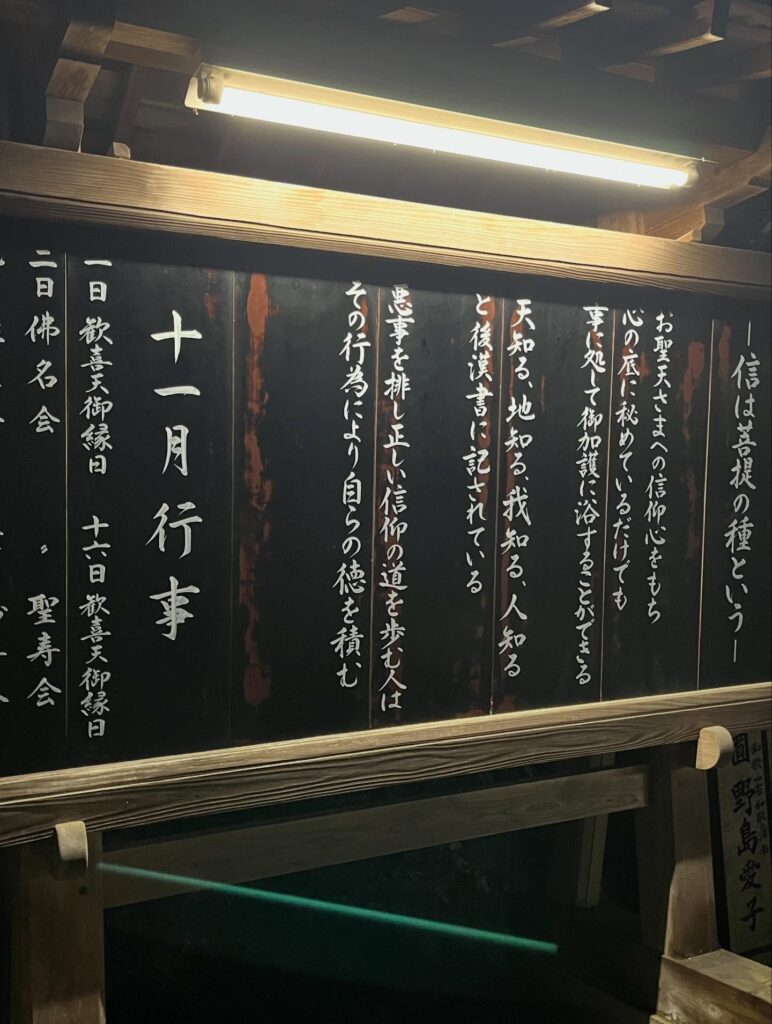 －信は菩提の種という－
お聖天さまへの信仰心をもち
心の底に秘めているだけでも
事に処して御加護に浴することができる
天知る、地知る、我知る、人知る
と後漢書に記されている
悪事を排し正しい信仰の道を歩む人は
その行為により自らの徳を積む
十一月行事
一日 歓喜天御縁日 十六日 歓喜天御縁日
二日 佛名会 〃 聖寿会
野島愛子